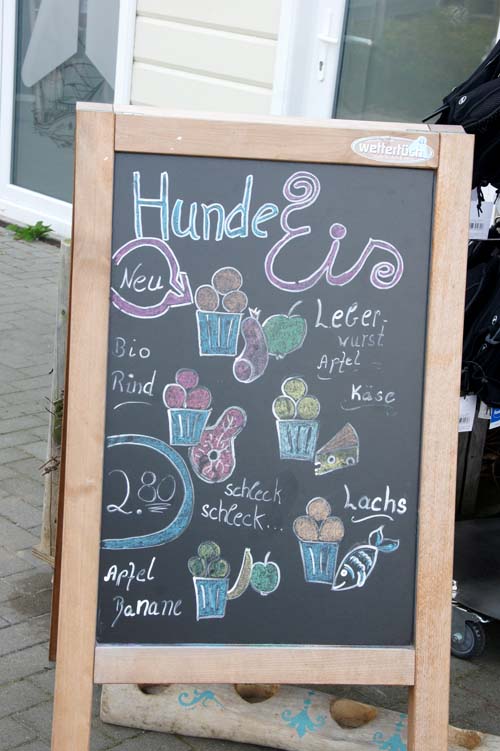 wetterfüchs
Hunde Eis
Neu
Leber-
wurst
Apfel
Bio
Rind
Käse
2.80
schleck
schleck...
Lachs
Apfel
Banane